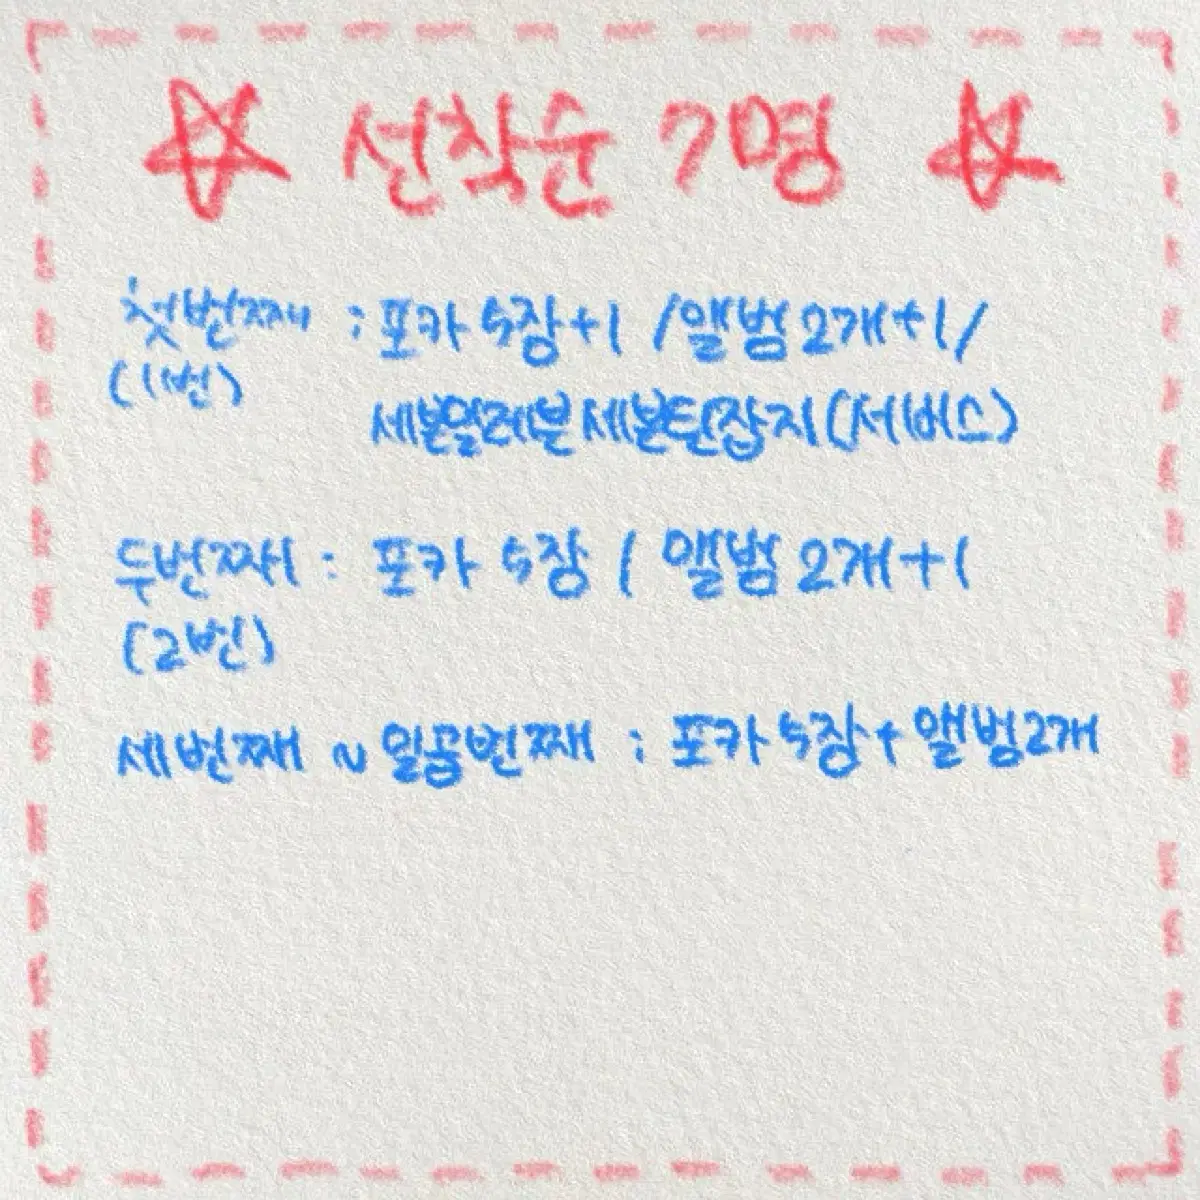 ☆ 선착순 7명 ☆
첫번째 : 포카 5장+1 / 앨범 2개+1 /
(1번)
세븐일레븐 세븐틴잡지 (서비스)
두번째 : 포카 5장 / 앨범 2개+1
(2번)
세번째 ~ 일곱번째 : 포카 5장 + 앨범2개